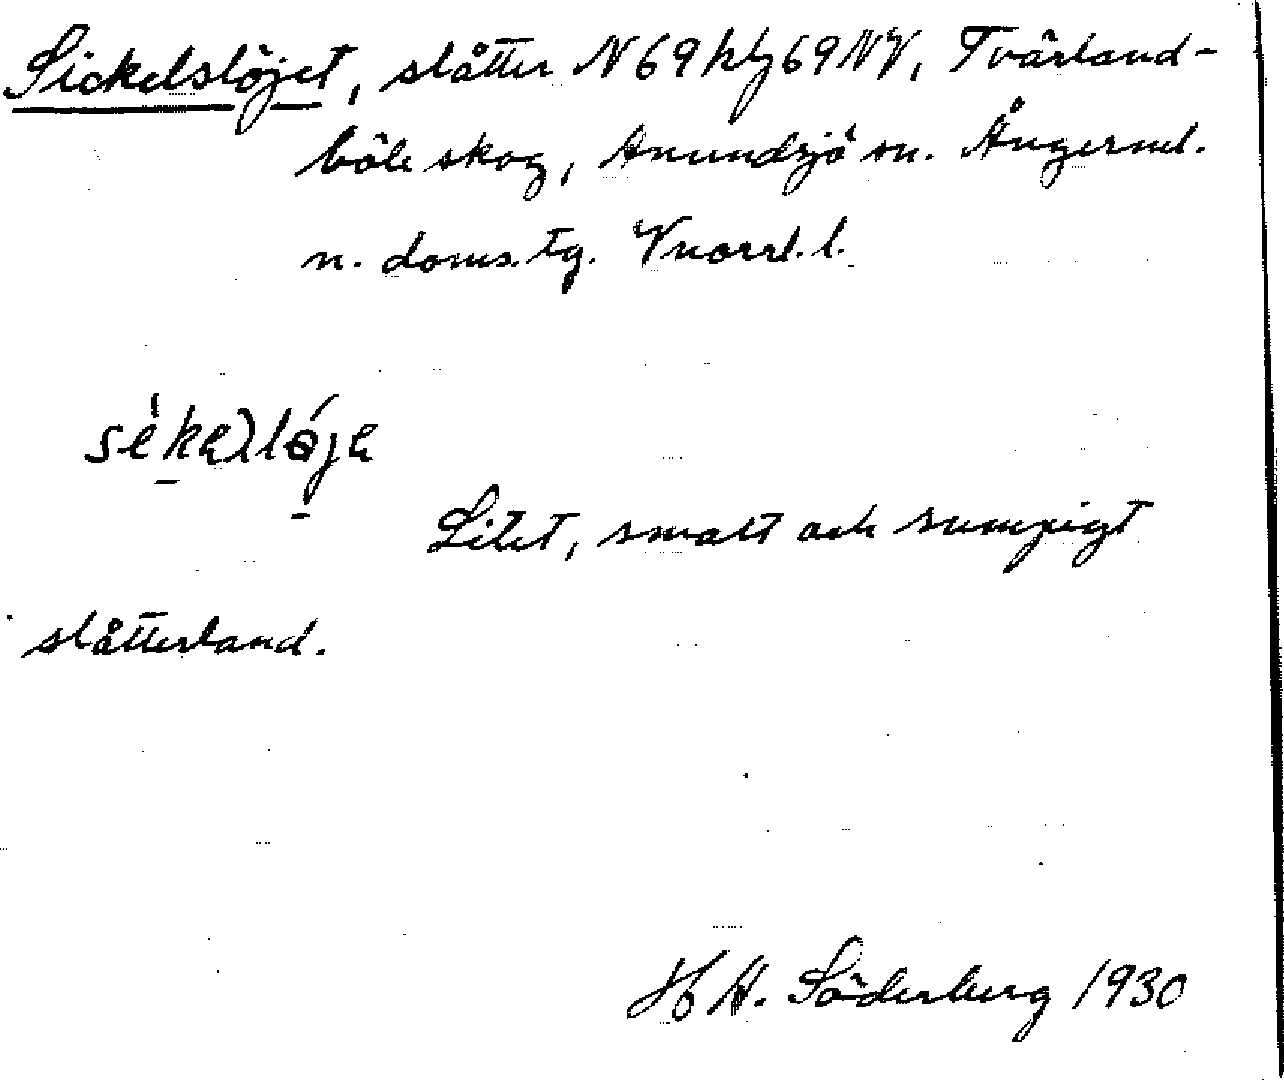 Sickelslöjet, slåtter N69 hbj 69 NV, Tvärland-
böle skog, Anundsjö sn. Ångerml.
n. doms. tg. Vnorrl. l.
Litet, smalt och sumpigt
slåtterland.
H H. Söderberg 1930